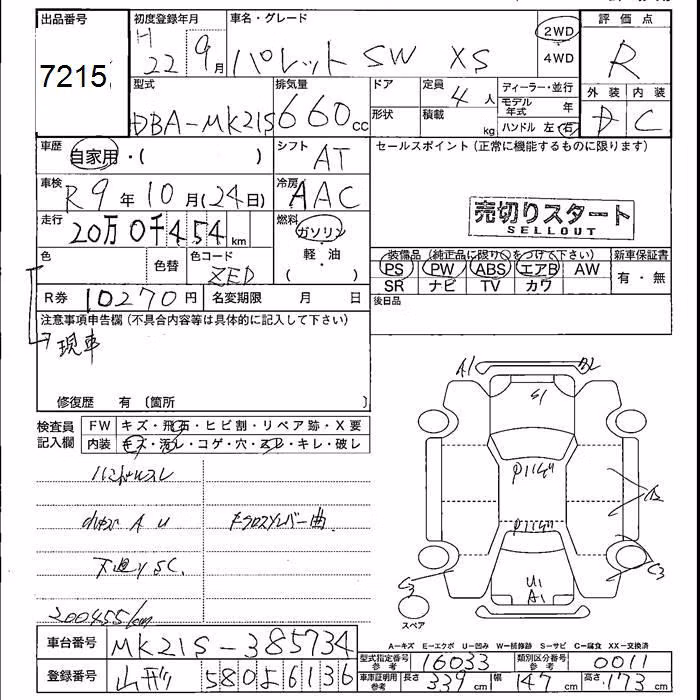 出品番号
7215
初度登録年月
H 22 9月
車名・グレード
パレット SW XS
2WD
4WD
評価点
R
外装 内装
D C
型式
DBA-MK21S
排気量
660cc
ドア
形状
定員
4人
積載
kg
ディーラー・並行
モデル年式 年
ハンドル 左・右
車歴
自家用・( )
シフト
AT
セールスポイント(正常に機能するものに限ります)
車検
R9年10月(24日)
冷房
AAC
売切りスタート
SELLOUT
走行
20万0千454km
燃料
ガソリン
軽・油
( )
色
色替
色コード
ZED
装備品(純正品に限り○をつけて下さい)
新車保証書
PS PW ABS エアB AW
SR ナビ TV カワ
有・無
R券 10270円
名変期限 月 日
後日品
注意事項申告欄(不具合内容等は具体的に記入して下さい)
現車
修復歴 有〔箇所 〕
検査員記入欄
FW キズ・飛石・ヒビ割・リペア跡・X要
内装 キズ・汚レ・コゲ・穴・スレ・キレ・破レ
ハンドルスレ
A U
クロスメンバー曲
下廻りSC.
200455km
A1
A2
S1
U1
A1
C3
C3
スペア
A-キズ E-エクボ U-凹み W-補修跡 S-サビ C-腐食 XX-交換済
車台番号
MK21S-385734
登録番号
山形 580 ゆ 6136
型式指定番号 参考
16033
類別区分番号 参考
0011
車庫証明用 参考
長さ 339cm
幅 147cm
高さ 173cm